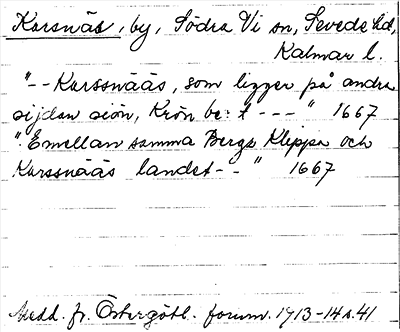 Korsnäs, by, Södra Vi sn, Sevede hd,
Kalmar l.
"-- Karssnääs, som ligger på andra
sijdan siön, Krön be: t --- " 1667
". Emellan samma Bergs Kleppe och
Karssnääs landet -- " 1667
Medd. fr. Östergötl. fornm. 1913-14 s. 41